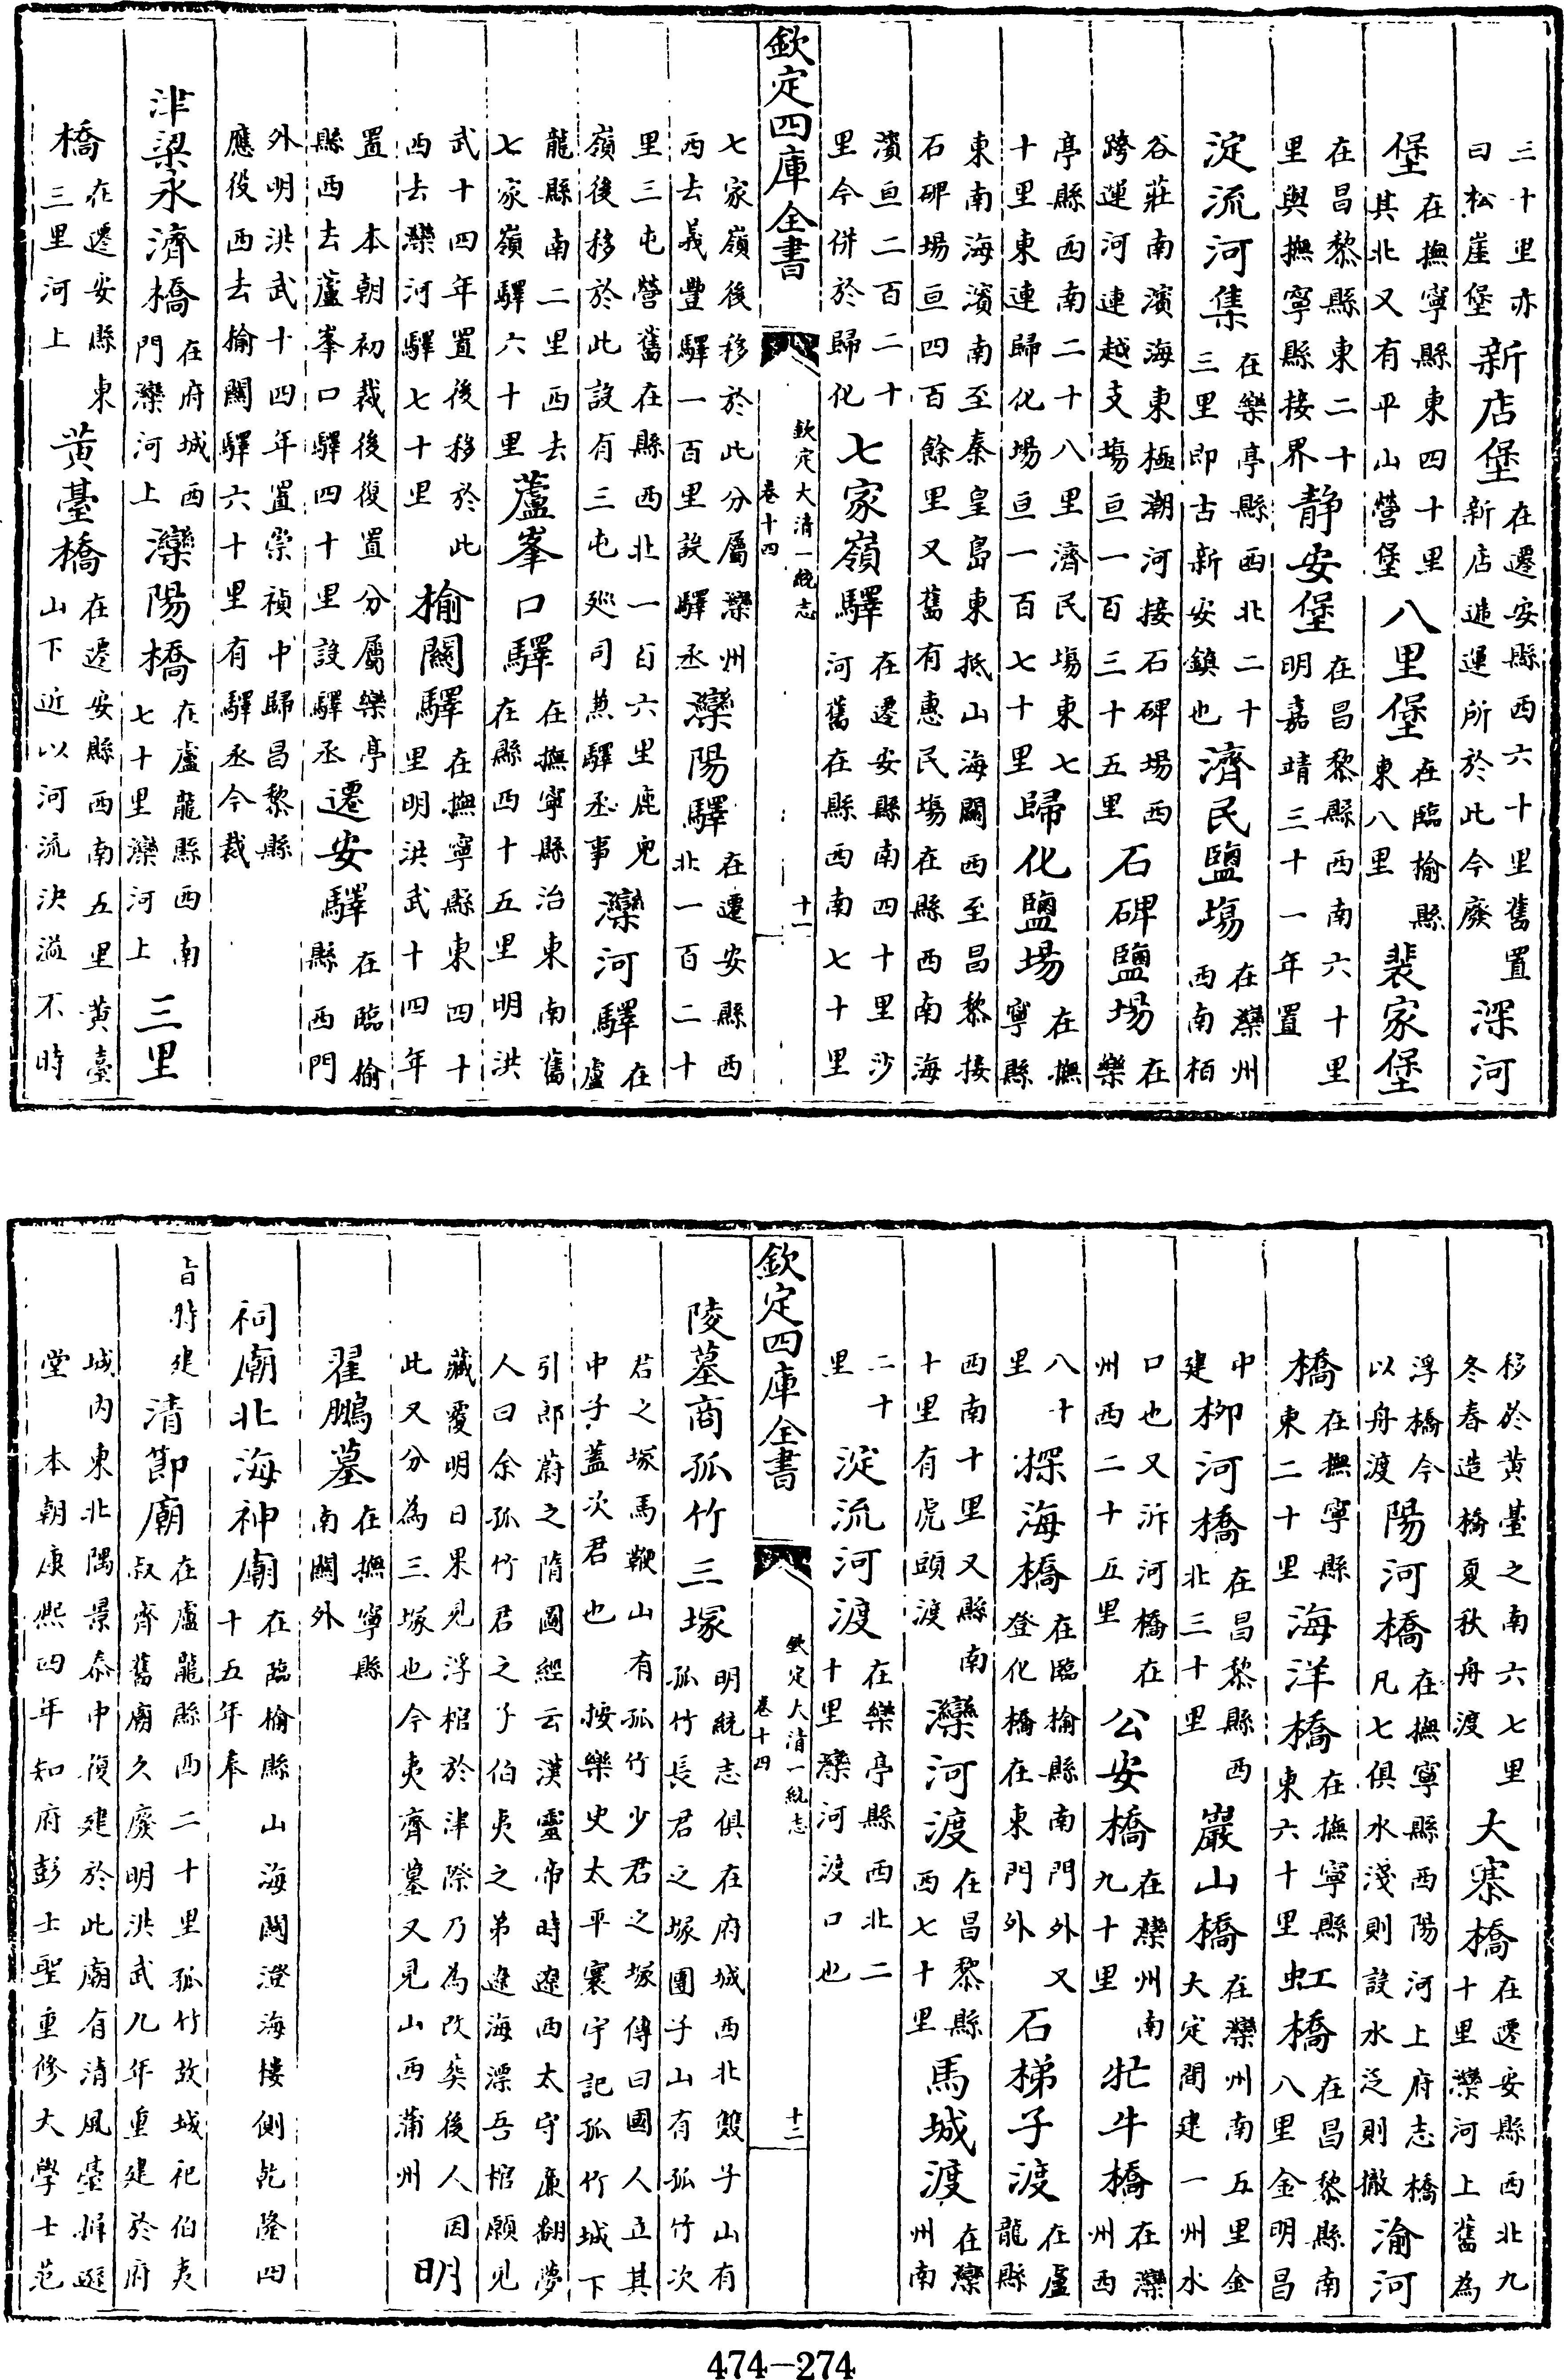 三十里亦曰松崖堡新店堡在遷安縣西六十里舊置新店逓運所於此今廢深河
堡在撫寧縣東四十里其北又有平山營堡八里堡在臨榆縣東八里裴家堡
在昌黎縣東二十里與撫寧縣接界静安堡在昌黎縣西南六十里明嘉靖三十一年置
淀流河集在樂亭縣西北二十三里即古新安鎮也濟民鹽塲在灤州西南栢
谷莊南濵海東極潮河接石碑場西跨運河連越支塲亘一百三十五里石碑鹽場在樂
亭縣西南二十八里濟民塲東七十里東連歸化場亘一百七十里歸化鹽場在撫寧縣
東南海濵南至秦皇島東抵山海關西至昌黎接石碑場亘四百餘里又舊有惠民場在縣西南海
濵亘二百二十里今併於歸化七家嶺驛在遷安縣南四十里沙河舊在縣西南七十里
欽定四庫全書
欽定大清一統志
卷十四
十一
七家嶺後移於此分屬灤州西去義豐驛一百里設驛丞灤陽驛在遷安縣西北一百二十
里三屯營舊在縣西北一百六里鹿兒嶺後移於此設有三屯廵司兼驛丞事灤河驛在盧
龍縣南二里西去七家嶺驛六十里蘆峯口驛在撫寧縣治東南舊在縣西十五里明洪
武十四年置後移於此西去灤河驛七十里榆關驛在撫寧縣東四十里明洪武十四年
置本朝初裁後復置分屬樂亭縣西去蘆峯口驛四十里設驛丞遷安驛在臨榆縣西門
外明洪武十四年置崇禎中歸昌黎縣應役西去榆關驛六十里有驛丞今裁
津梁永濟橋在府城西門灤河上灤陽橋在盧龍縣西南七十里灤河上三里
橋在遷安縣東三里河上黄臺橋在遷安縣西南五里黄臺山下近以河流決溢不時
移於黄臺之南六七里冬春造橋夏秋舟渡大寨橋在遷安縣西北九十里灤河上舊為
浮橋今以舟渡陽河橋在撫寧縣西陽河上府志橋凡七俱水淺則設水泛則撤渝河
橋在撫寧縣東二十里海洋橋在撫寧縣東六十里虹橋在昌黎縣南八里金明昌
中建柳河橋在昌黎縣西北三十里巖山橋在灤州南五里金大定間建一州水
口也又泝河橋在州西二十五里公安橋在灤州南九十里牤牛橋在灤州西
八十里探海橋在臨榆縣南門外又登化橋在東門外石梯子渡在盧龍縣
西南十里又縣南十里有虎頭渡灤河渡在昌黎縣西七十里馬城渡在灤州南
二十里淀流河渡在樂亭縣西北二十里灤河渡口也
欽定四庫全書
欽定大清一統志
卷十四
十二
陵墓商孤竹三塚明統志俱在府城西北雙子山有孤竹長君之塚團子山有孤竹次
君之塚馬鞭山有孤竹少君之塚傳曰國人立其中子蓋次君也按樂史太平寰宇記孤竹城下
引郎蔚之隋圖經云漢靈帝時遼西太守廉翻夢人曰余孤竹君之子伯夷之弟遼海漂吾棺願見
藏覆明日果見浮棺於津際乃為改葵後人因此又分為三塚也今夷齊墓又見山西蒲州明
翟鵬墓在撫寧縣南關外
祠廟北海神廟在臨榆縣山海關澄海樓側乾隆四十五年奉
旨特建清節廟在盧龍縣西二十里孤竹故城祀伯夷叔齊舊廟久廢明洪武九年重建於府
城内東北隅景泰中復建於此廟有清風臺揖遜堂本朝康熙四年知府彭士聖重修大學士范
474-274